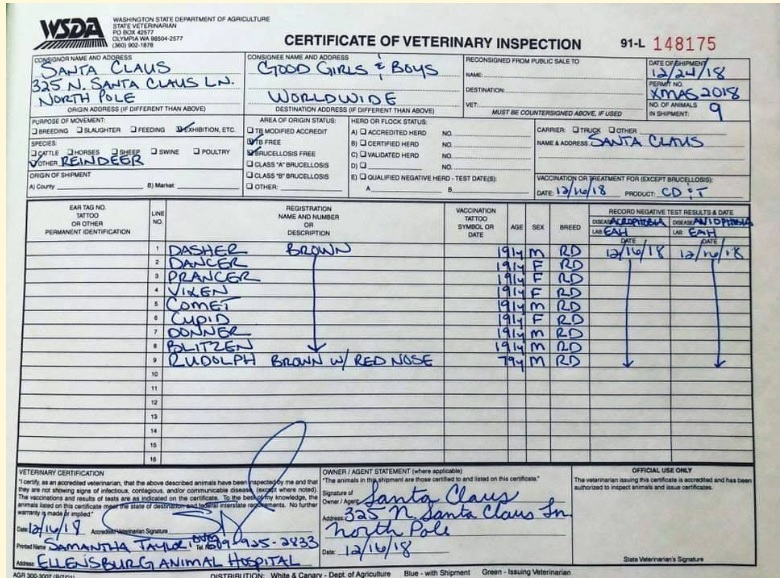 WSDA
WASHINGTON STATE DEPARTMENT OF AGRICULTURE
STATE VETERINARIAN
PO BOX 42577
OLYMPIA WA 98504-2577
(360) 902-1878
CERTIFICATE OF VETERINARY INSPECTION
91-L 148175
CONSIGNOR NAME AND ADDRESS
SANTA CLAUS
325 N. SANTA CLAUS LN.
NORTH POLE
ORIGIN ADDRESS (IF DIFFERENT THAN ABOVE)
CONSIGNEE NAME AND ADDRESS
GOOD GIRLS & BOYS
WORLDWIDE
DESTINATION ADDRESS (IF DIFFERENT THAN ABOVE)
RECONSIGNED FROM PUBLIC SALE TO
NAME:
DESTINATION:
VET:
MUST BE COUNTERSIGNED ABOVE, IF USED
DATE OF SHIPMENT
12/24/18
PERMIT NO.
XMAS2018
NO. OF ANIMALS
IN SHIPMENT: 9
PURPOSE OF MOVEMENT:
BREEDING SLAUGHTER FEEDING EXHIBITION, ETC.
SPECIES:
CATTLE HORSES SHEEP SWINE POULTRY
OTHER REINDEER
ORIGIN OF SHIPMENT
A) County B) Market
AREA OF ORIGIN STATUS:
TB MODIFIED ACCREDIT
TB FREE
BRUCELLOSIS FREE
CLASS "A" BRUCELLOSIS
CLASS "B" BRUCELLOSIS
OTHER:
HERD OR FLOCK STATUS:
A) ACCREDITED HERD NO.
B) CERTIFIED HERD NO.
C) VALIDATED HERD NO.
D) NO.
E) QUALIFIED NEGATIVE HERD - TEST DATE(S):
A B
CARRIER: TRUCK OTHER
NAME & ADDRESS SANTA CLAUS
VACCINATION OR TREATMENT FOR (EXCEPT BRUCELLOSIS):
DATE: 12/16/18 PRODUCT: CD & T
EAR TAG NO.
TATTOO
OR OTHER
PERMANENT IDENTIFICATION
LINE
NO.
REGISTRATION
NAME AND NUMBER
OR
DESCRIPTION
VACCINATION
TATTOO
SYMBOL OR
DATE
AGE SEX BREED
RECORD NEGATIVE TEST RESULTS & DATE
DISEASE ACROPHOBIA DISEASE AVIOPHOBIA
LAB: EAH LAB: EAH
DATE DATE
1 DASHER BROWN 191y M RD 12/16/18 12/16/18
2 DANCER 191y F RD
3 PRANCER 191y F RD
4 VIXEN 191y F RD
5 COMET 191y M RD
6 CUPID 191y F RD
7 DONNER 191y M RD
8 BLITZEN 191y M RD
9 RUDOLPH BROWN W/ RED NOSE 79y M RD
10
11
12
13
14
15
16
VETERINARY CERTIFICATION
"I certify, as an accredited veterinarian, that the above described animals have been inspected by me and that
they are not showing signs of infectious, contagious, and/or communicable disease, (except where noted).
The vaccinations and results of tests are as indicated on the certificate. To the best of my knowledge, the
animals listed on this certificate meet the state of destination and federal interstate requirements. No further
warranty is made or implied"
Date 12/16/18 Accredited Veterinarian Signature
Printed Name SAMANTHA TAYLOR, DVM Tel. No. 509-925-2833
Address: ELLENSBURG ANIMAL HOSPITAL
OWNER / AGENT STATEMENT (where applicable)
"The animals in this shipment are those certified to and listed on this certificate."
Signature of
Owner / Agent Santa Claus
Address: 325 N Santa Claus Ln
North Pole
Date: 12/16/18
OFFICIAL USE ONLY
The veterinarian issuing this certificate is accredited and has been
authorized to inspect animals and issue certificates.
State Veterinarian's Signature
DISTRIBUTION: White & Canary - Dept. of Agriculture Blue - with Shipment Green - Issuing Veterinarian